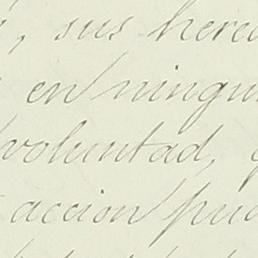 , sus here
en ningu
voluntad,
accion pue